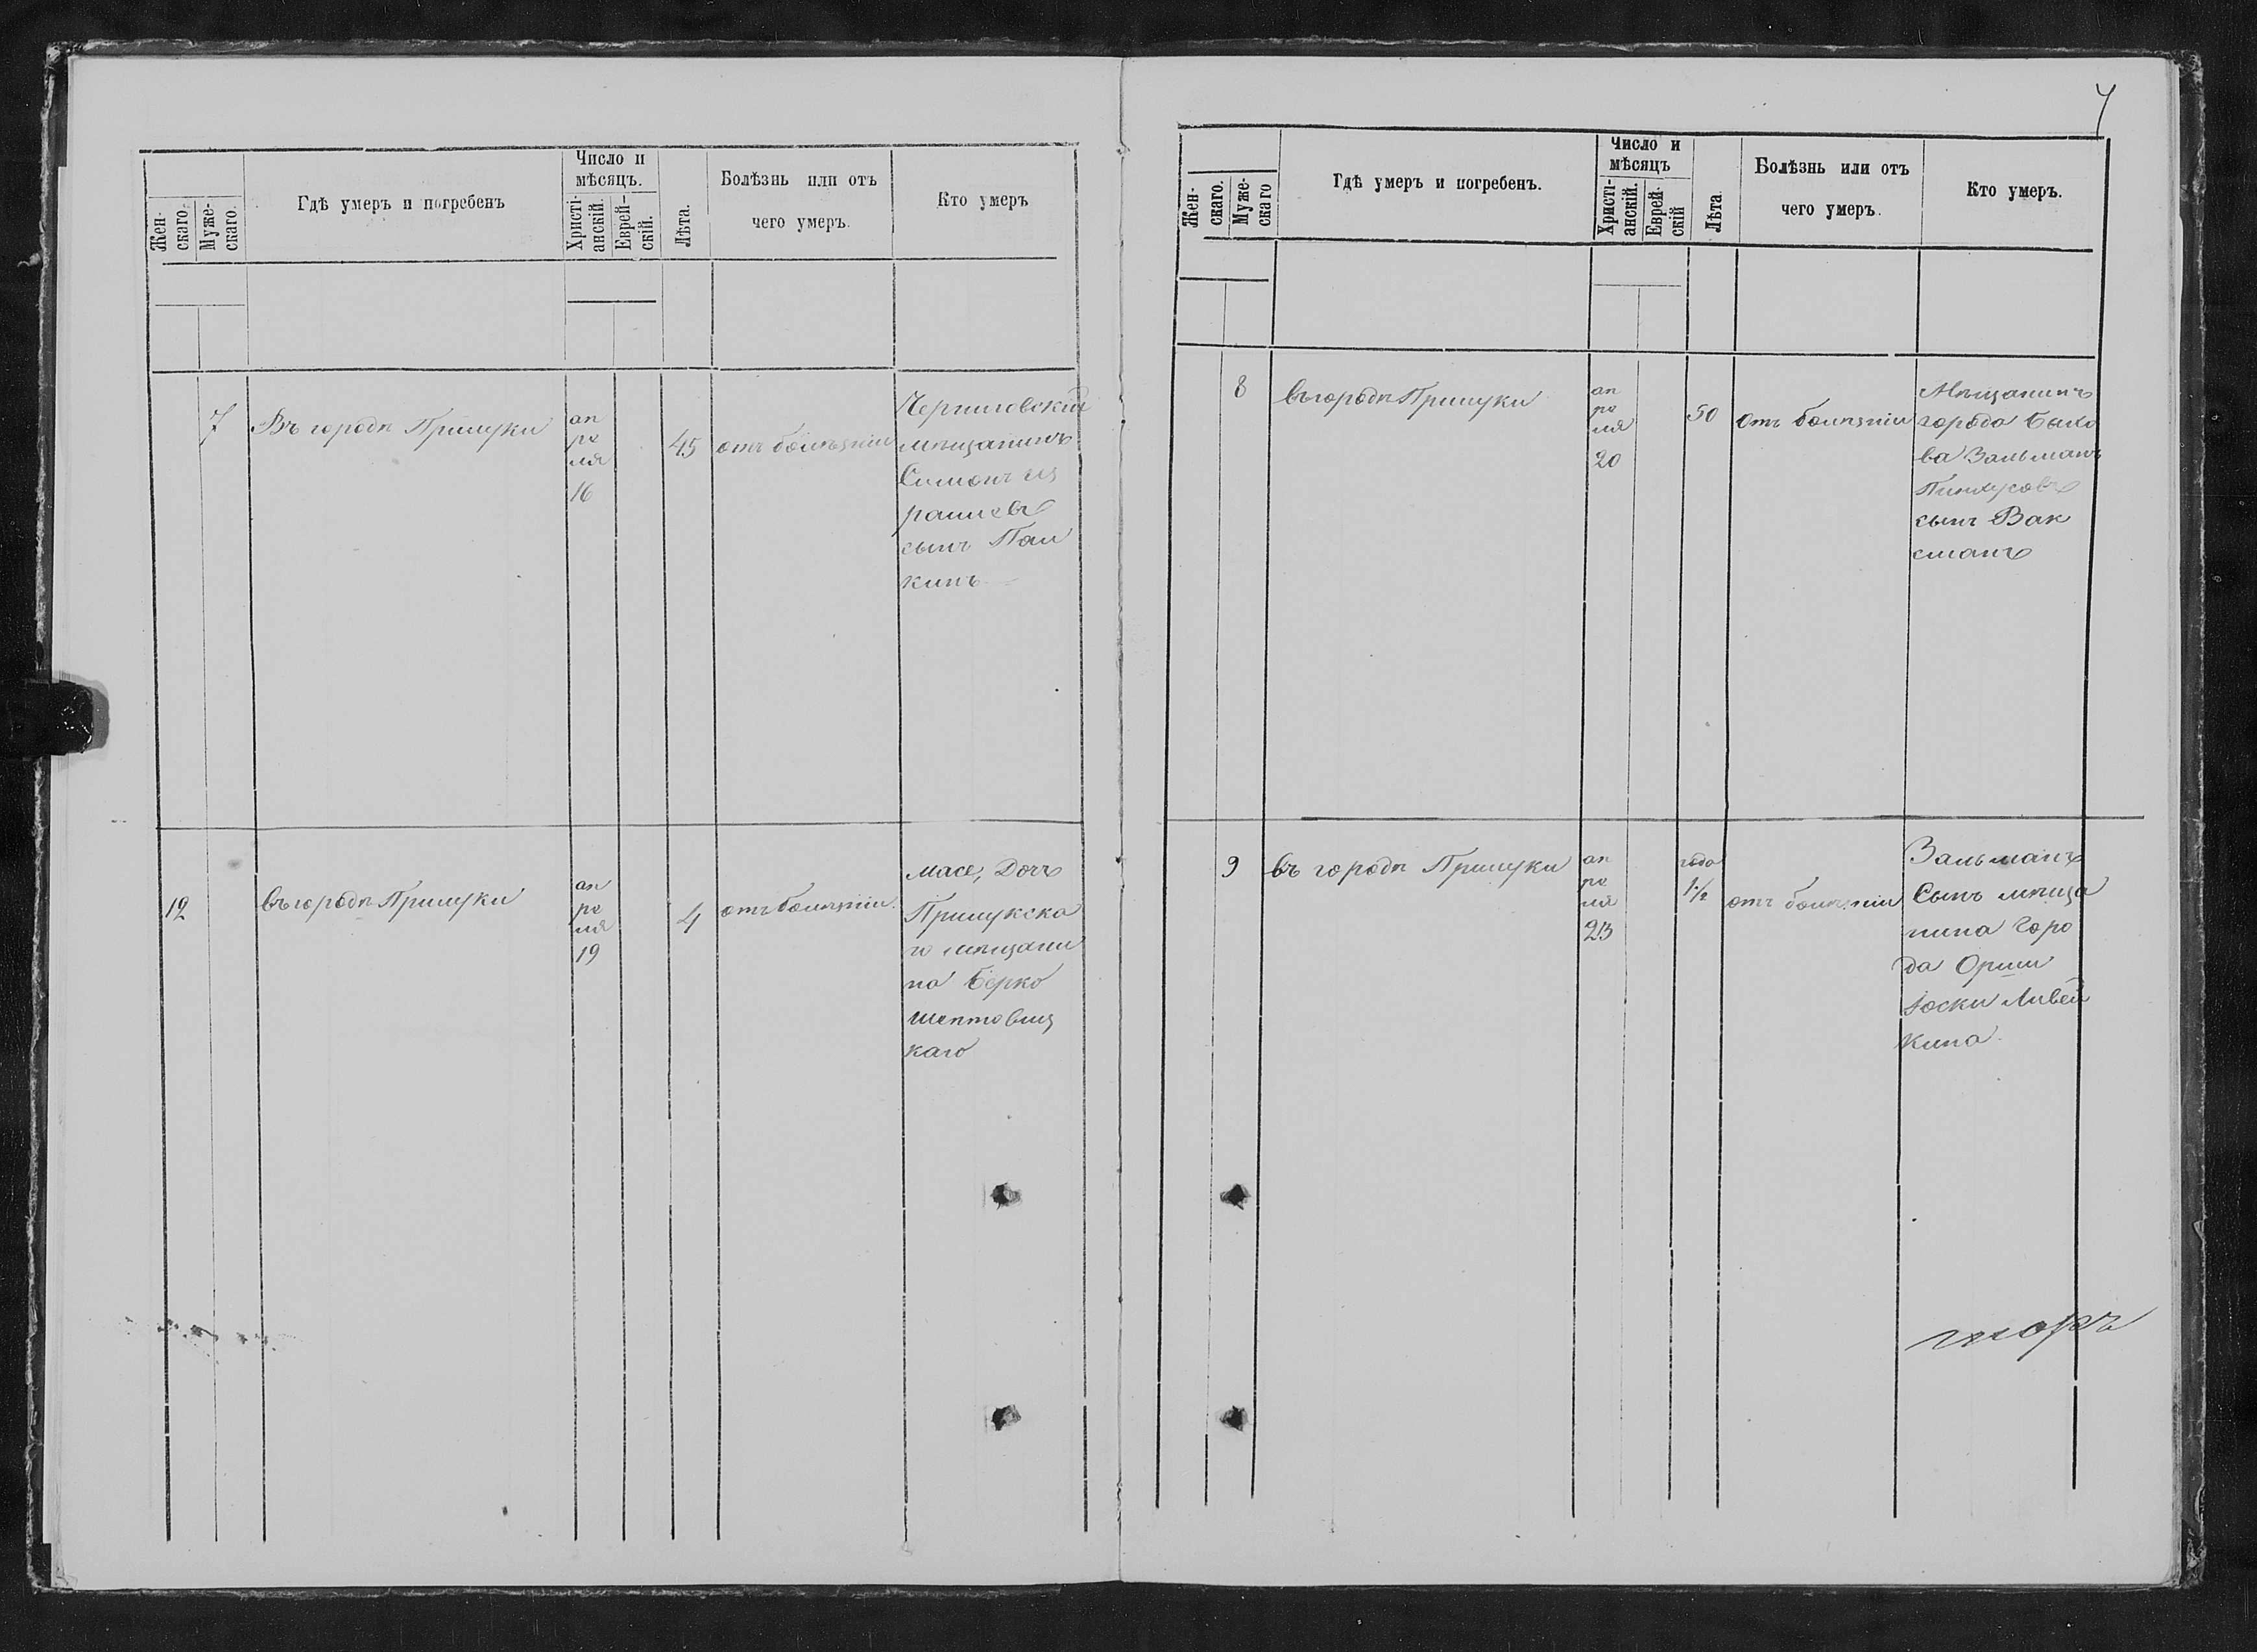 Жен-
скаго.
Муже-
скаго.
Гдѣ умеръ и погребенъ
Число и
мѣсяцъ.
Христі-
анскій.
Еврей-
скій.
Лѣта.
Болѣзнь или отъ
чего умеръ.
Кто умеръ
7
Въ городѣ Прилуки
ап
ре
ля
16
45
отъ болѣзніи
Черниговскій
мѣщанинъ
Симонъ Из
раилевъ
сынъ Пал
кинъ
12
въ городѣ Прилуки
ап
ре
ля
19
4
отъ болѣзніи
Масе, Дочъ
Прилукска
го мѣщани
на Берко
шептовиц
каго
7
Жен-
скаго.
Муже-
скаго
Гдѣ умеръ и погребенъ.
Число и
мѣсяцъ
Христі-
анскій.
Еврей-
скій
Лѣта
Болѣзнь или отъ
чего умеръ.
Кто умеръ.
8
въ городѣ Прилуки
ап
ре
ля
20
50
отъ болѣзніи
Мѣщанинъ
города Быхо
ва Зальманъ
Пинхусовъ
сынъ Вак
сманъ
9
въ городѣ Прилуки
ап
ре
ля
23
года
1½
отъ болѣзніи
Зальманъ
Сынъ мѣща
нина Горо
да Орши
Іоски Ливей
кина